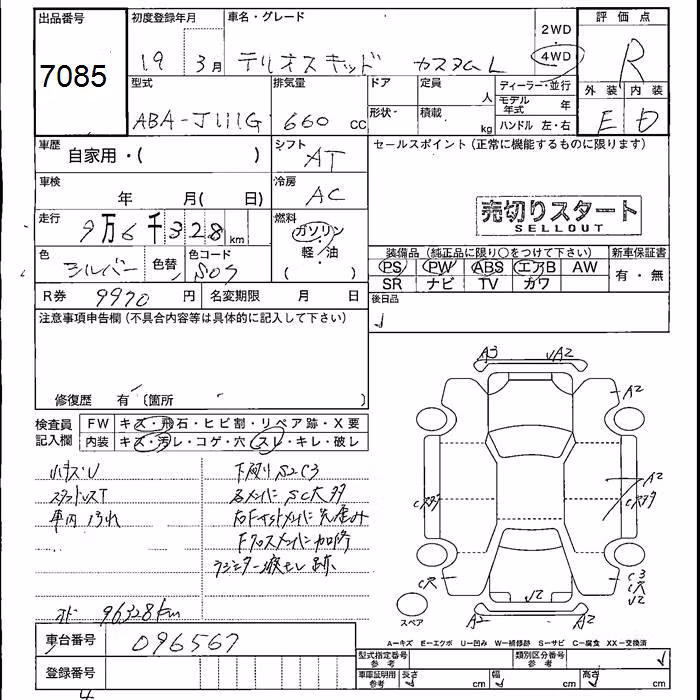 出品番号
7085
初度登録年月
19 3月
車名・グレード
テリオスキッド カスタムL
2WD
4WD
評価点
R
外装 内装
E D
型式
ABA-J111G
排気量
660 cc
ドア
形状
定員
人
積載
kg
ディーラー・並行
モデル年式 年
ハンドル 左・右
車歴
自家用・( )
シフト
AT
セールスポイント (正常に機能するものに限ります)
車検
年 月( 日)
冷房
AC
売切りスタート
SELLOUT
走行
9万6千328km
燃料
ガソリン
・軽/油
( )
色
シルバー
色替
色コード
S07
装備品 (純正品に限り○をつけて下さい)
PS PW ABS エアB AW
SR ナビ TV カワ
新車保証書
有・無
R券 9970 円
名変期限 月 日
後日品
注意事項申告欄 (不具合内容等は具体的に記入して下さい)
修復歴 有 〔箇所
検査員記入欄
FW キズ・飛石・ヒビ割・リペア跡・X要
内装 キズ・汚レ・コゲ・穴・スレ・キレ・破レ
ハンドルスレ
スタッドレスT
車内汚れ
下廻りS2C3
各メンバーSC大
Fクロスメンバー加修
ラジエター
跡
96328km
A3 A2
A2
A2
C3
C大
A2 A2
スペア
A-キズ E-エクボ U-凹み W-補修跡 S-サビ C-腐食 XX-交換済
車台番号
096567
登録番号
型式指定番号 参考
類別区分番号 参考
車庫証明用 参考
長さ cm
幅 cm
高さ cm